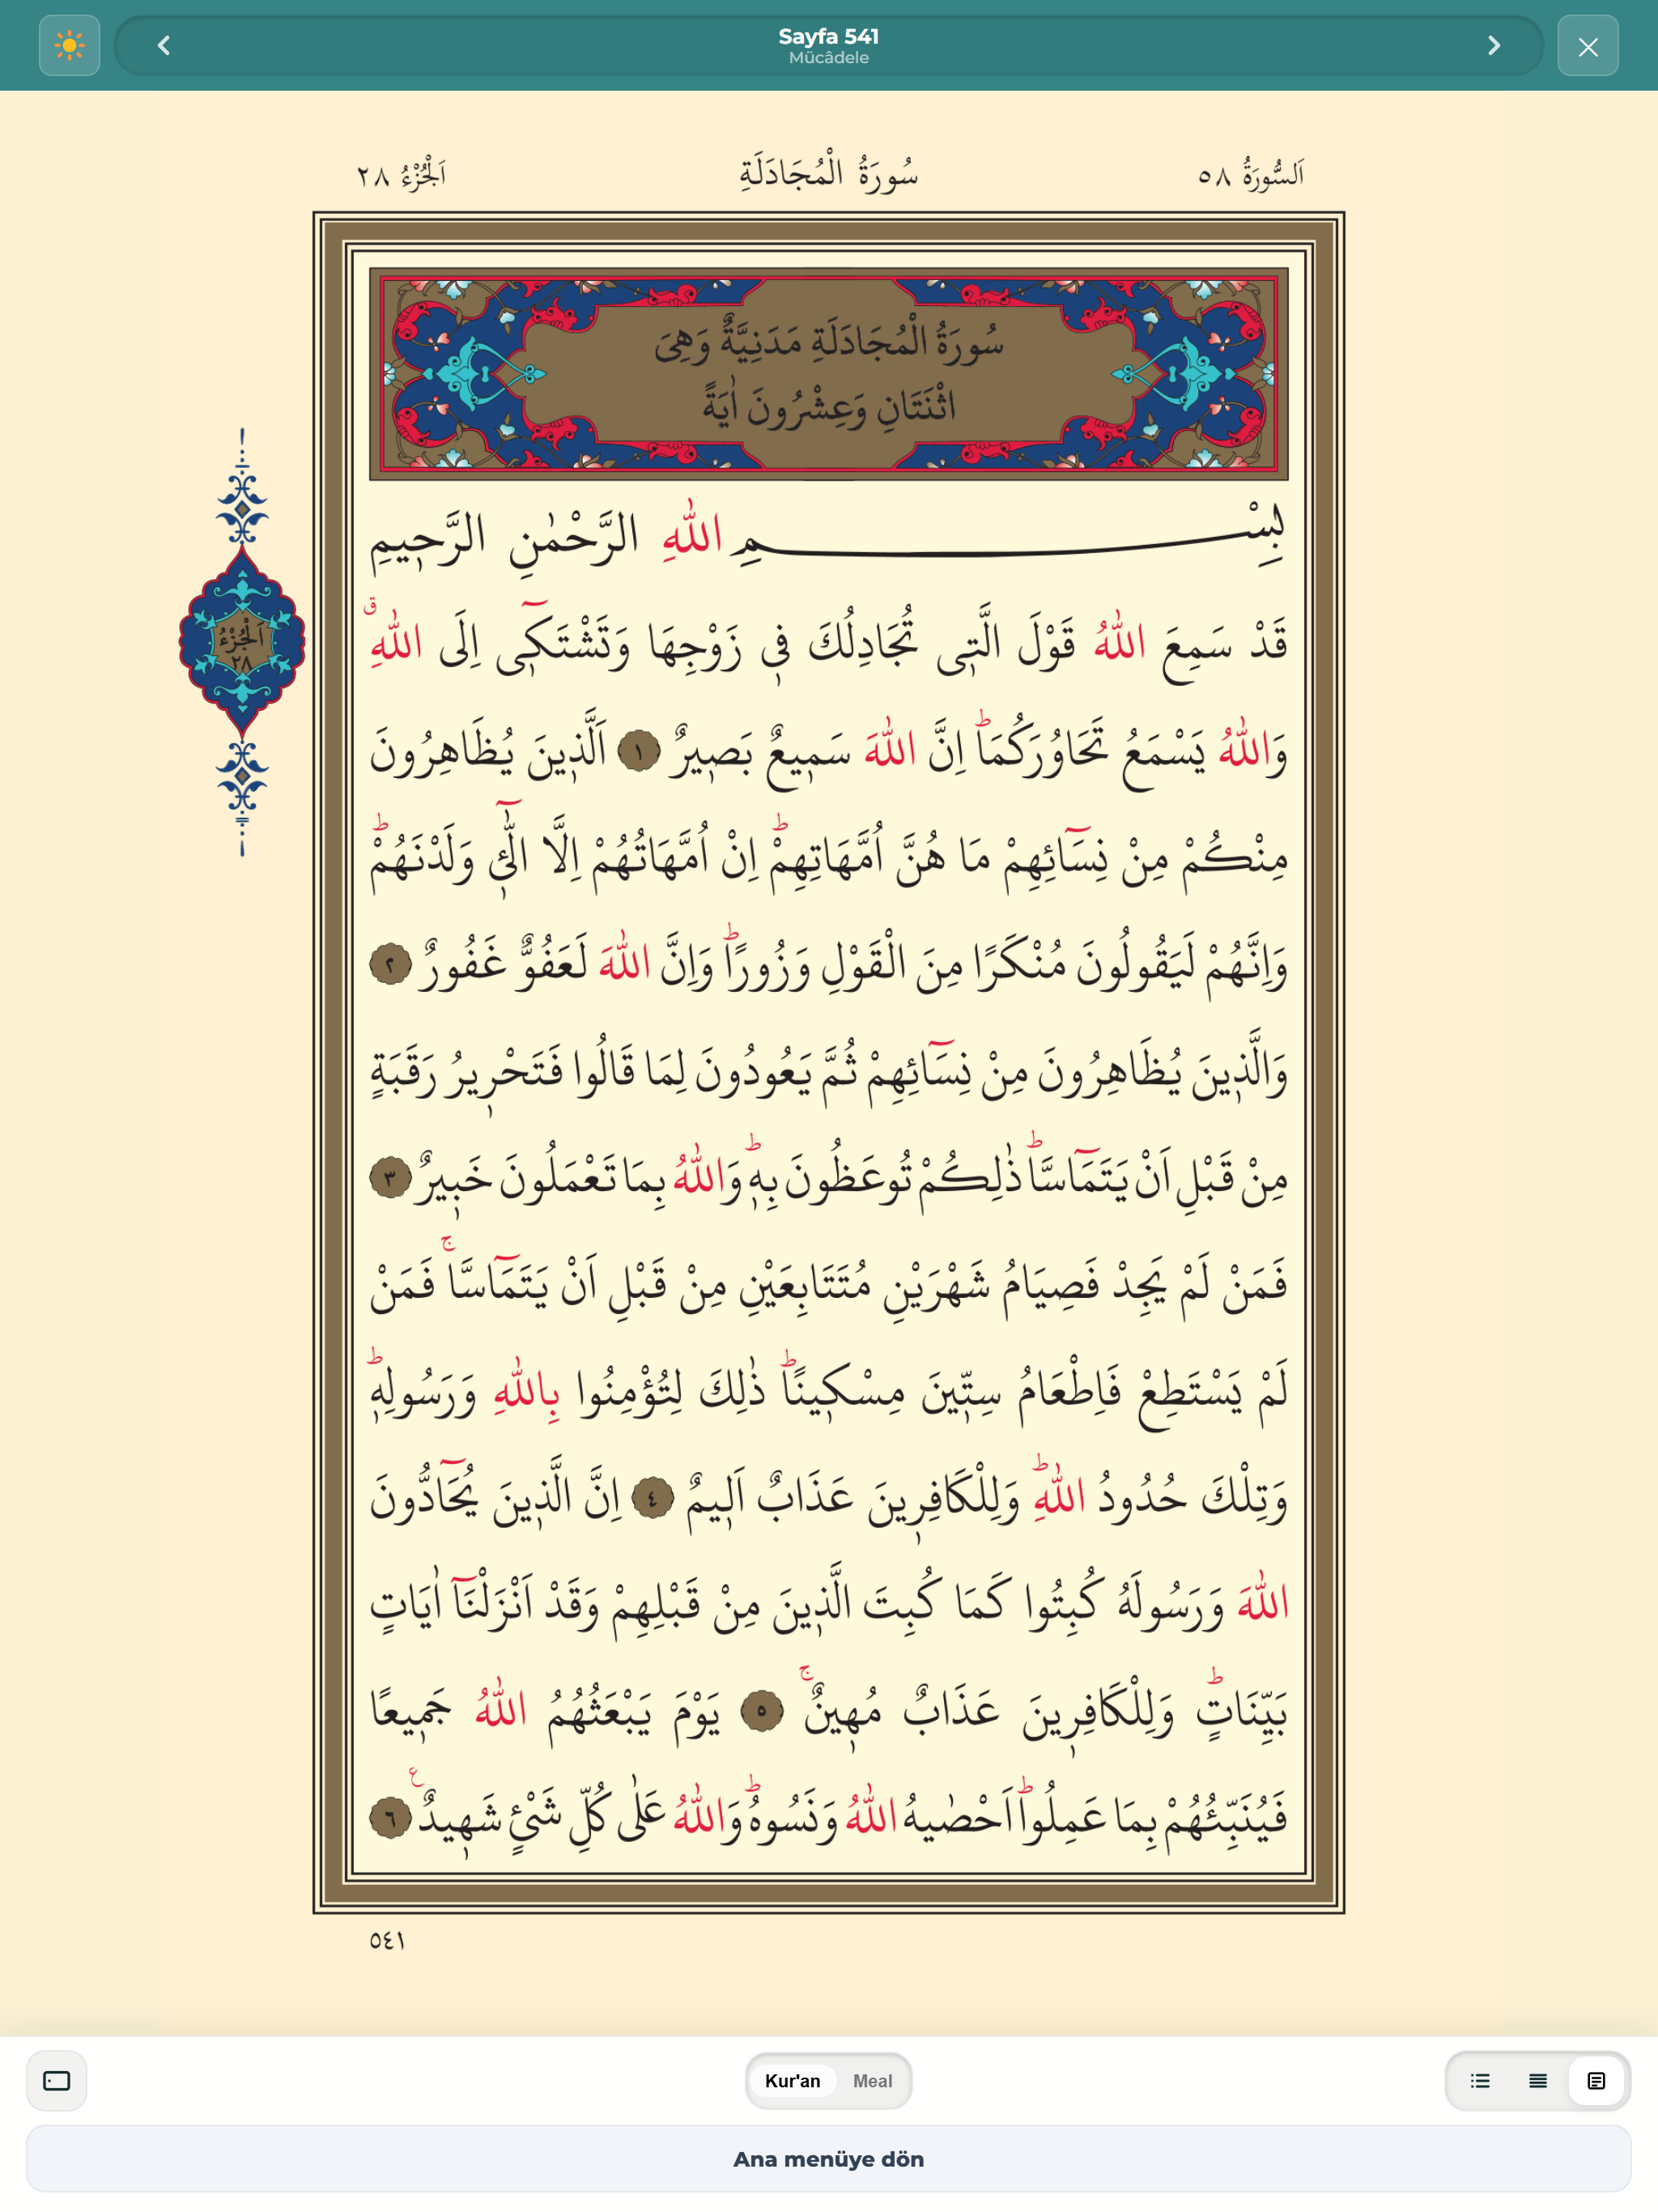 Sayfa 541
Mücâdele
اَلسُّورَةُ ٥٨
سُورَةُ الْمُجَادَلَةِ
اَلْجُزْءُ ٢٨
سُورَةُ الْمُجَادَلَةِ مَدَنِيَّةٌ وَهِىَ
اثْنَتَانِ وَعِشْرُونَ اٰيَةً
بِسْمِ اللّٰهِ الرَّحْمٰنِ الرَّحٖيمِ
قَدْ سَمِعَ اللّٰهُ قَوْلَ الَّتٖى تُجَادِلُكَ فٖى زَوْجِهَا وَتَشْتَكٖٓى اِلَى اللّٰهِۗ
اَلْجُزْءُ
٢٨
وَاللّٰهُ يَسْمَعُ تَحَاوُرَكُمَاؕ اِنَّ اللّٰهَ سَمٖيعٌ بَصٖيرٌ ١ اَلَّذٖينَ يُظَاهِرُونَ
مِنْكُمْ مِنْ نِسَٓائِهِمْ مَا هُنَّ اُمَّهَاتِهِمْؕ اِنْ اُمَّهَاتُهُمْ اِلَّا الّٰٓـٖٔى وَلَدْنَهُمْؕ
وَاِنَّهُمْ لَيَقُولُونَ مُنْكَرًا مِنَ الْقَوْلِ وَزُورًاؕ وَاِنَّ اللّٰهَ لَعَفُوٌّ غَفُورٌ ٢
وَالَّذٖينَ يُظَاهِرُونَ مِنْ نِسَٓائِهِمْ ثُمَّ يَعُودُونَ لِمَا قَالُوا فَتَحْرٖيرُ رَقَبَةٍ
مِنْ قَبْلِ اَنْ يَتَمَٓاسَّاؕ ذٰلِكُمْ تُوعَظُونَ بِهٖؕ وَاللّٰهُ بِمَا تَعْمَلُونَ خَبٖيرٌ ٣
فَمَنْ لَمْ يَجِدْ فَصِيَامُ شَهْرَيْنِ مُتَتَابِعَيْنِ مِنْ قَبْلِ اَنْ يَتَمَٓاسَّاۚ فَمَنْ
لَمْ يَسْتَطِعْ فَاِطْعَامُ سِتّٖينَ مِسْكٖينًاؕ ذٰلِكَ لِتُؤْمِنُوا بِاللّٰهِ وَرَسُولِهٖؕ
وَتِلْكَ حُدُودُ اللّٰهِؕ وَلِلْكَافِرٖينَ عَذَابٌ اَلٖيمٌ ٤ اِنَّ الَّذٖينَ يُحَٓادُّونَ
اللّٰهَ وَرَسُولَهُ كُبِتُوا كَمَا كُبِتَ الَّذٖينَ مِنْ قَبْلِهِمْ وَقَدْ اَنْزَلْنَٓا اٰيَاتٍ
بَيِّنَاتٍؕ وَلِلْكَافِرٖينَ عَذَابٌ مُهٖينٌۚ ٥ يَوْمَ يَبْعَثُهُمُ اللّٰهُ جَمٖيعًا
فَيُنَبِّئُهُمْ بِمَا عَمِلُواؕ اَحْصٰيهُ اللّٰهُ وَنَسُوهُؕ وَاللّٰهُ عَلٰى كُلِّ شَیْءٍ شَهٖيدٌࣖ ٦
٥٤١
Kur'an
Meal
Ana menüye dön